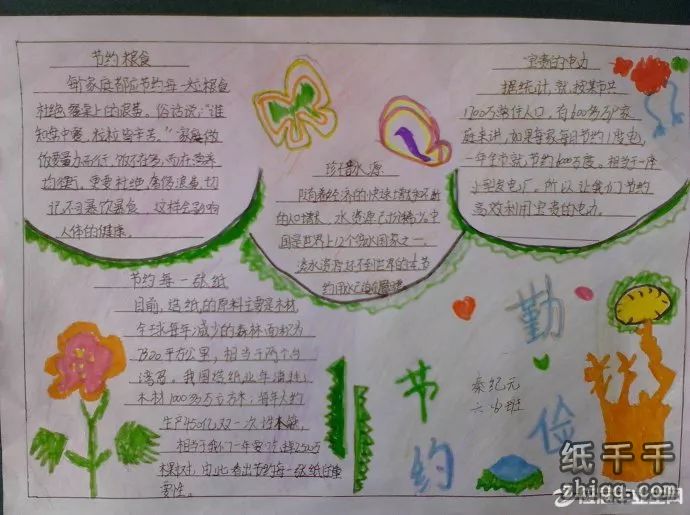 节约粮食
每个家庭都应节约每一粒粮食
杜绝餐桌上的浪费。俗话说:"谁
知盘中餐,粒粒皆辛苦。"家庭做
饭要量力而行,饭不在多,而在营养
均衡,更要杜绝腐偐浪费,切
记不可暴饮暴食,这样会影响
人体的健康。
珍惜水源
随着经济的快速增长和不断
的人口增长,水资源已
国是世界上12个贫水国家之一,
淡水资源还不到世界的
约用水
宝贵的电力
据统计,就按某市共
1700万兼住人口,有600多万户家
庭来讲,如果每家每日节约1度电,
一年全市就节约600万度。相当于一座
小型发电厂。所以让我们节约
高效利用宝贵的电力。
节约每一张纸
目前,造纸的原料主要是木材,
全球每年减少的森林面积为
7320平方公里,相当于两个台
湾岛。我国造纸业年消耗
木材1000多万立方米,每年大约
生产450亿双一次性木筷,
相当于我们一年要吃掉2500万
木材,由此看出节约每一张纸的重
要性。
勤俭
节约
秦纪元
六·6班
纸千千
zhiqq.com